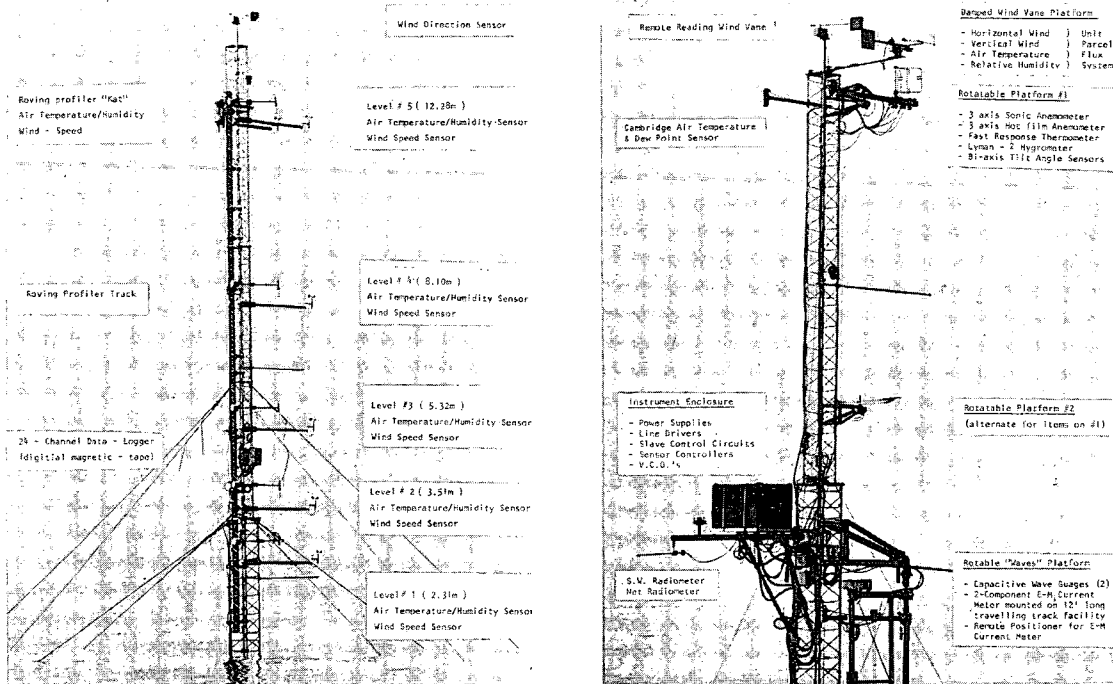 Wind Direction Sensor
Roving profiler "Kat"
Air Temperature/Humidity
Wind - Speed
Level # 5 ( 12.28m )
Air Temperature/Humidity Sensor
Wind Speed Sensor
Roving Profiler Track
Level # 4 ( 8.10m )
Air Temperature/Humidity Sensor
Wind Speed Sensor
24 - Channel Data - Logger
(digitial magnetic - tape)
Level #3 ( 5.32m )
Air Temperature/Humidity Sensor
Wind Speed Sensor
Level # 2 ( 3.51m )
Air Temperature/Humidity Sensor
Wind Speed Sensor
Level # 1 ( 2.31m )
Air Temperature/Humidity Sensor
Wind Speed Sensor
Remote Reading Wind Vane
Damped Wind Vane Platform
- Horizontal Wind ) Unit
- Vertical Wind ) Parcel
- Air Temperature ) Flux
- Relative Humidity ) System
Cambridge Air Temperature
& Dew Point Sensor
Rotatable Platform #1
- 3 axis Sonic Anemometer
- 3 axis Hot film Anemometer
- Fast Response Thermometer
- Lyman - 2 Hygrometer
- Bi-axis Tilt Angle Sensors
Instrument Enclosure
- Power Supplies
- Line Drivers
- Slave Control Circuits
- Sensor Controllers
- V.C.O.'s
Rotatable Platform #2
(alternate for items on #1)
S.W. Radiometer
Net Radiometer
Rotable "Waves" Platform
- Capacitive Wave Guages (2)
- 2-Component E-M Current
Meter mounted on 12' long
travelling track facility
- Remote Positioner for E-M
Current Meter